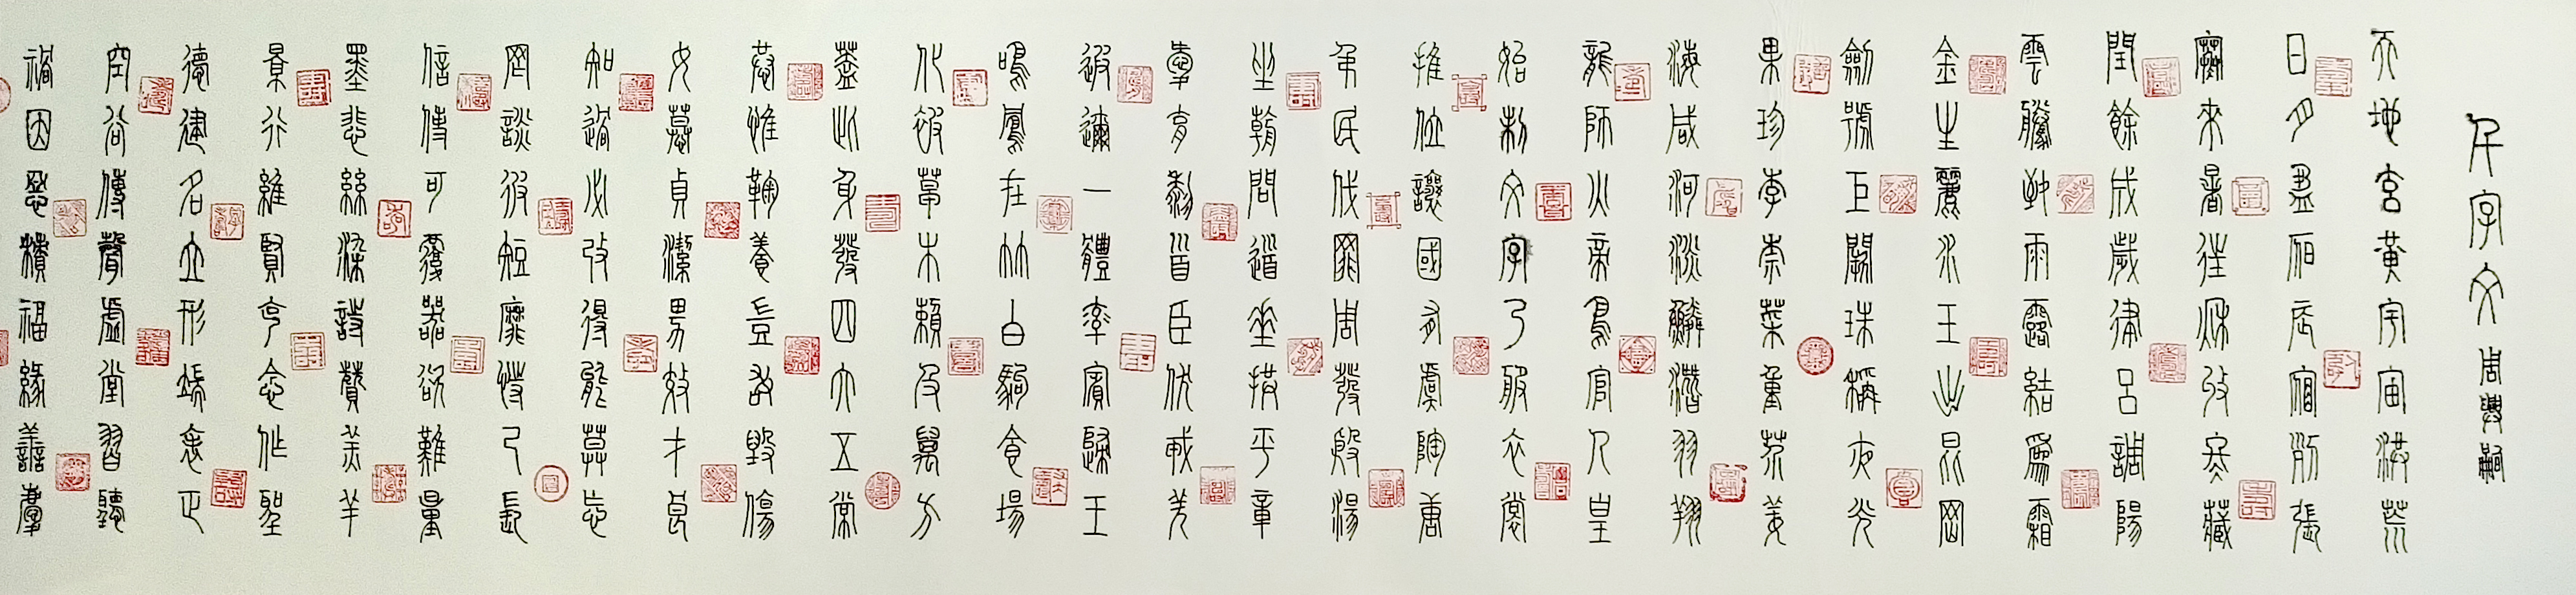 千字文 周興嗣
天地玄黃宇宙洪荒
日月盈昃辰宿列張
寒來暑往秋收冬藏
閏餘成歲律呂調陽
雲騰致雨露結爲霜
金生麗水玉出昆岡
劍號巨闕珠稱夜光
果珍李柰菜重芥姜
海咸河淡鱗潛羽翔
龍師火帝鳥官人皇
始制文字乃服衣裳
推位讓國有虞陶唐
弔民伐罪周發殷湯
坐朝問道垂拱平章
愛育黎首臣伏戎羌
遐邇一體率賓歸王
鳴鳳在竹白駒食場
化被草木賴及萬方
蓋此身髮四大五常
恭惟鞠養豈敢毀傷
女慕貞潔男效才良
知過必改得能莫忘
罔談彼短靡恃己長
信使可覆器欲難量
墨悲絲染詩贊羔羊
景行維賢克念作聖
德建名立形端表正
空谷傳聲虛堂習聽
禍因惡積福緣善慶